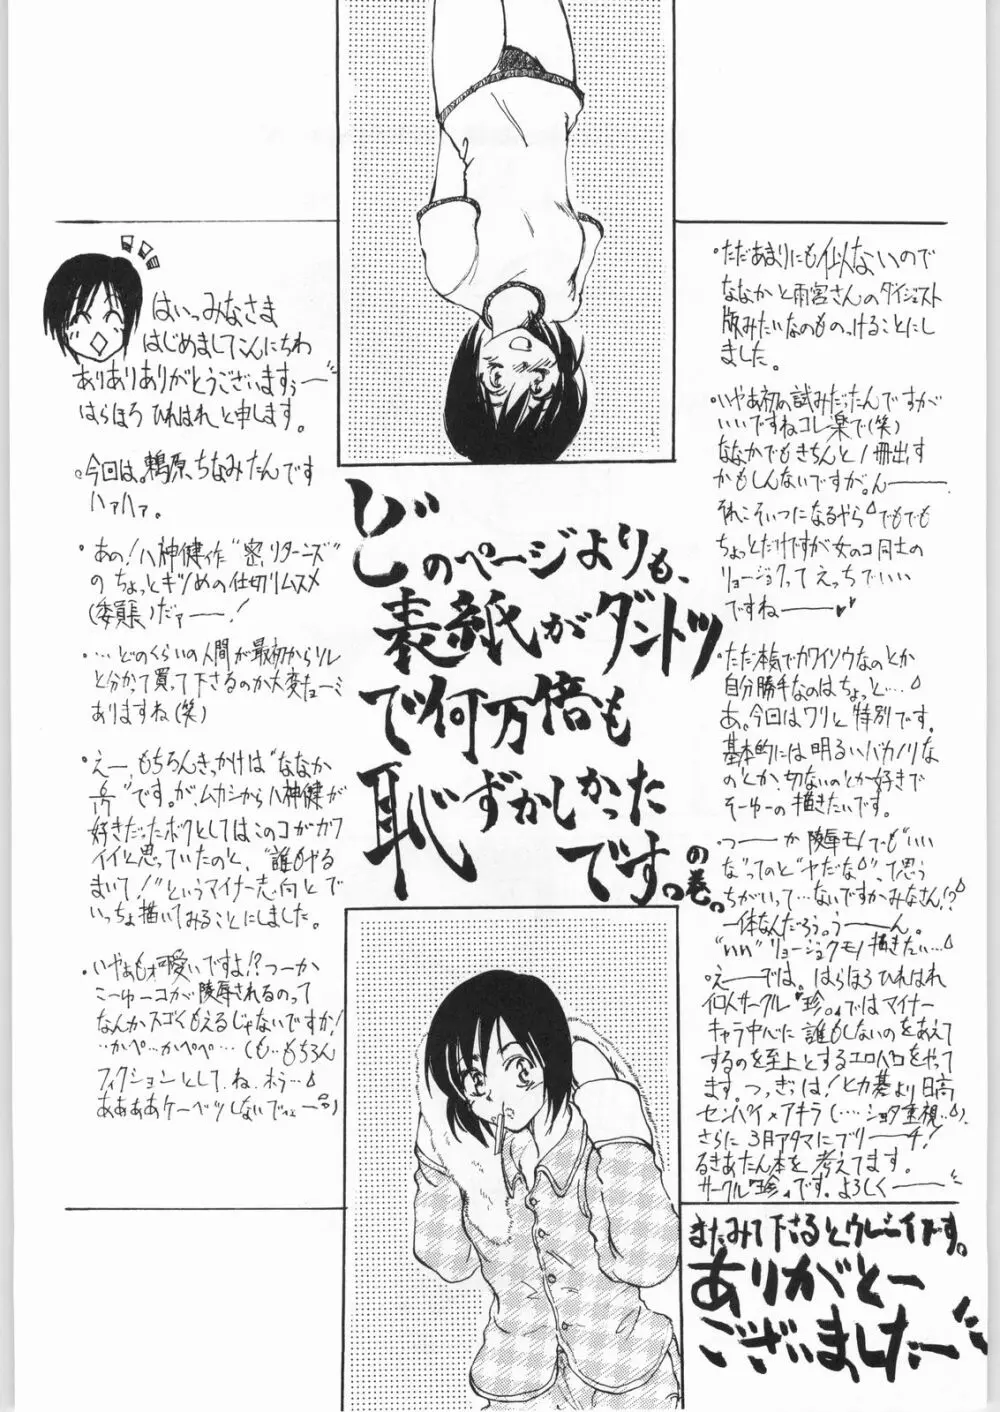 はいっみなさま
はじめましてこんにちわ
ありありありがとうございますぅー
はらほろ ひれはれ と申します。
・今回は。鵜原、ちなみたんです
ハァハァ。
・あの!八神健作“密リターンズ”
の ちょっとキツめの仕切リムスメ
(委員長)だァーー!
・…どのくらいの人間が最初からソレ
と分かって買って下さるのか大変キョーミ
ありますね(笑)
・えー、もちろんきっかけは“ななか
6/17”です。が、ムカシから八神健が
好きだったボクとしてはこのコがカワ
イイと思っていたのと、“誰もやる
まいて!”というマイナー志向とで
いっちょ描いてみることにしました。
・いやぁも可愛いですよ!?つーか
こーゆーコが陵辱されるのって
なんかスゴくもえるじゃないですか!
…かぺ…かぺぺ…(も…もちろん
フィクションとして、ね、ホラ…
ああああケーベツしないでェー)
どのページよりも、
表紙がダントツ
で何万倍も
恥ずかしかった
です。の巻。
・ただあまりにも似ないので
ななかと雨宮さんのダイジェスト
版みたいなのもつけることにし
ました。
・いやあ初の試みだったんですが
いいですねコレ楽で(笑)
ななかでもきちんと1冊出す
かもしんないですが。んーー
それこそいつになるやら でもでも
ちょっとだけですが女のコ同士の
リョージョクってえっちでいい
ですねーー♥♥
・ただ本気でカワイソウなのとか
自分勝手なのはちょっと…
あ。今回はワリと特別です。
基本的には明るいバカノリな
のとか、切ないのとか好きで
そーゆーの描きたいです。
・つーーか陵辱モノでも“いい
な”ってのと“ヤだな”って思う
ちがいって…ないですかみなさん!?
一体なんだろう。うーーん。
“いい”リョージョクモノ描きたい…
・えーでは。はらほろひれはれ
個人サークル『珍。』ではマイナー
キャラ中心に誰もしないのをあえて
するのを至上とするエロバカをやって
ます。つぎは!ヒカ碁より日高
センパイ×アキラ(…ショタ重視…)、
さらに3月アタマにブリーーチ!
るきあたん本を考えてます。
サークル『珍』です。よろしくーー
またみて下さるとウレシイです。
ありがとー
ございましたー